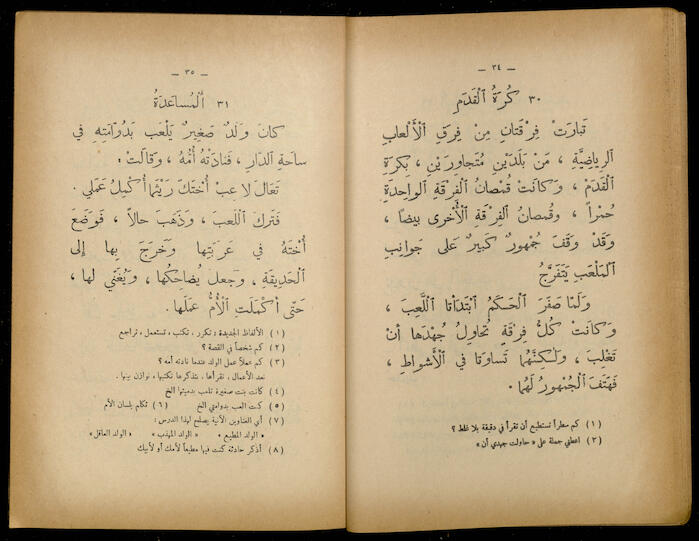 — ٣٤ —
٣٠ كُرَةُ ٱلْقَدَمِ
تَبَارَتْ فِرْقَتَانِ مِنْ فِرَقِ ٱلْأَلْعَابِ
ٱلرِّيَاضِيَّةِ ، مَنْ بَلَدَيْنِ مُتَجَاوِرَيْنِ ، بِكُرَةِ
ٱلْقَدَمْ ، وَكَانَتْ قُمْصَانُ ٱلْفِرْقَةِ ٱلْوَاحِدَةِ
حُمْراً ، وَقُمْصَانُ ٱلْفِرْقَةِ ٱلْأُخْرَى بِيضًا ،
وَقَدْ وَقَفَ جُمْهُورٌ كَبِيرٌ عَلَى جَوَانِبِ
ٱلْمَلْعَبِ يَتَفَرَّجُ
وَلَمَّا صَفَرَ ٱلْحَكَمُ ٱبْتَدَأَتَا ٱللَّعِبَ ،
وَكَانَتْ كُلُّ فِرْقَةٍ تُحَاوِلُ جُهْدَهَا أَنْ
تَغْلِبَ ، وَلٰكِنَّهُمَا تَسَاوَتَا فِي ٱلْأَشْوَاطِ ،
فَهَتَفَ ٱلْجُمْهُورُ لَهُمَا .
(١) كم سطراً تستطيع أن تقرأ في دقيقة بلا غلط ؟
(٢) اعطني جملة على « حاولت جهدي أن »
— ٣٥ —
٣١ اَلْمُسَاعَدَةُ
كَانَ وَلَدٌ صَغِيرٌ يَلْعَبُ بَدُوَّامَتِهِ فِي
سَاحَةِ ٱلدَّارِ ، فَنَادَتْهُ أُمُّهُ ، وَقَالَتْ :
تَعَالَ لَاعِبْ أُخْتَكَ رَيْثَمَا أُكْمِلُ عَمَلِي .
فَتَرَكَ ٱللَّعِبَ ، وَذَهَبَ حَالاً ، فَوَضَعَ
أُخْتَهُ فِي عَرَبَتِهَا وَخَرَجَ بِهَا إِلَى
ٱلْحَدِيقَةِ ، وَجَعَلَ يُضَاحِكُهَا ، وَيُغَنِّي لَهَا ،
حَتَّى أَكْمَلَتِ ٱلْأُمُّ عَمَلَهَا .
(١) الألفاظ الجديدة : تكرر ، تكتب ، تستعمل ، تراجع
(٢) كم شخصاً في القصة ؟
(٣) كم عملاً عمل الولد عندما نادته أمه ؟
نعد الأعمال ، نقرأها ، نتذكرها نكتبها ، نوازن بينها .
(٤) كانت بنت صغيرة تلعب بدميتها الخ
(٥) كنت العب بدوامتي الخ (٦) تكلم بلسان الأم
(٧) أي العناوين الآتية يصلح لهذا الدرس :
« الولد المطيع » « الولد المهذب » « الولد العاقل »
(٨) أذكر حادثة كنت فيها مطيعاً لأمك أو لأبيك